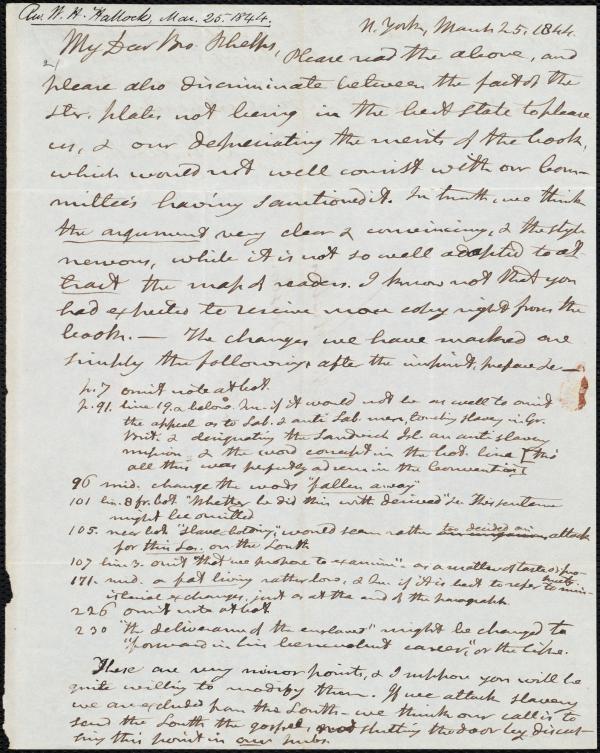 Rev. W. A. Hallock, Mar. 25. 1844.
N. York, March 25, 1844.
My Dear Bro. Phelps,
Please read the above, and
please also discriminate between the fact of the
ster. plates not being in the best state to please
us, & our depreciating the merits of the book,
which would not well consist with our Com-
mittee's having sanctioned it. In truth, we think
the argument very clear & convincing, & the style
nervous, while it is not so well adapted to at
tract the mass of readers. I know not that you
had expected to receive more copy right from the
book. — The changes we have marked are
simply the following, after the imprint, preface &c —
p. 7 omit note at bot.
p. 91. line 19. a below. Qu. if it would not be as well to omit
the appeal as to Sab. & anti Sab. men, touching slavery in Gr.
Brit. & designating the Sandwich Isl. an anti slavery
mission, & the word concept in the bot. line [this
all this was perfectly ad rem in the Convention]
96 mid. change the words "fallen away"
101 lin. 8 fr. bot "Whether he did this with deceived" &c This sentence
might be omitted
105. near bot "slave-holding," would seem rather too decided an attack
for this Soc. on the South
107 line 3. omit "that we propose to examine" - as a matter of taste
171. mid. a fat living rather low, & Qu. if it is best to refer to min-
isterial exchanges, just as at the end of the paragraph.
226 omit note at bot
230 "the deliverance of the enslaved" might be changed to
"forward in his benevolent career," or the like.
These are very minor points, & I suppose you will be
quite willing to modify them. If we attack slavery
we are excluded from the South - we think our call is to
send the South the gospel, not shutting the door by discus-
sing this point in our pubs.